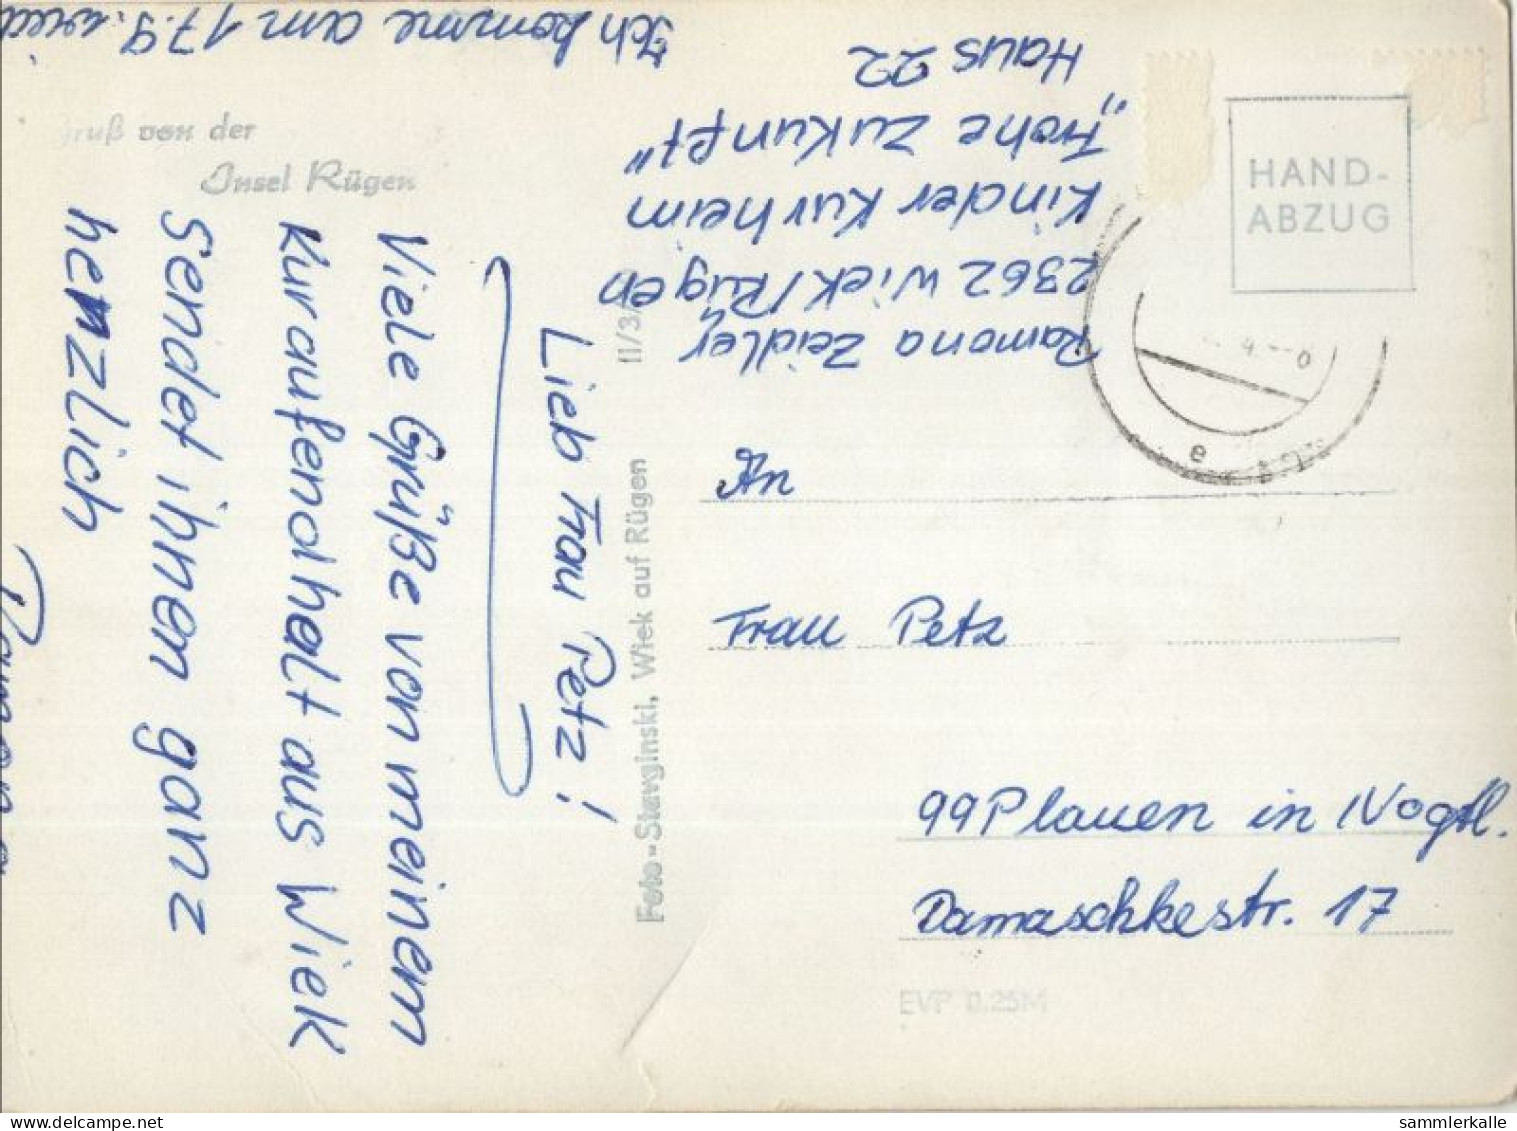 Ich komme am 17.9. wied
Gruß von der
Insel Rügen
Lieb Frau Petz!
Viele Grüße von meinem
Kuraufendhalt aus Wiek
Sendet ihnen ganz
herzlich
Ramona
Foto-Stavginski, Wiek auf Rügen II/3/
Ramona Zeidler
2362 Wiek/Rügen
Kinder Kurheim
„Frohe Zukunft"
Haus 22
HAND-
ABZUG
e
An
Frau Petz
99 Plauen in /Vogtl.
Damaschkestr. 17
EVP 0.25M
sammlerkalle